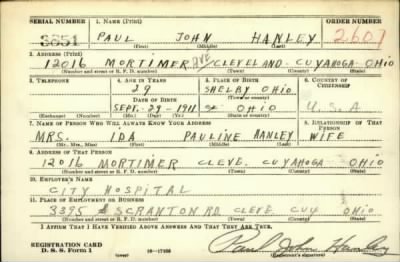 SERIAL NUMBER 1. NAME (Print) ORDER NUMBER
3651 PAUL JOHN HANLEY 2607
(First) (Middle) (Last)
2. ADDRESS (Print)
12016 MORTIMER AVE CLEVELAND CUYAHOGA OHIO
(Number and street or R. F. D. number) (Town) (County) (State)
3. TELEPHONE 4. AGE IN YEARS 5. PLACE OF BIRTH 6. COUNTRY OF CITIZENSHIP
29 SHELBY OHIO
DATE OF BIRTH (Town or county)
SEPT. 29-1911 OHIO U.S.A
(Exchange) (Number) (Mo.) (Day) (Yr.) (State or country)
7. NAME OF PERSON WHO WILL ALWAYS KNOW YOUR ADDRESS 8. RELATIONSHIP OF THAT PERSON
MRS. IDA PAULINE HANLEY WIFE
(Mr., Mrs., Miss) (First) (Middle) (Last)
9. ADDRESS OF THAT PERSON
12016 MORTIMER CLEVE. CUYAHOGA OHIO
(Number and street or R. F. D. number) (Town) (County) (State)
10. EMPLOYER'S NAME
CITY HOSPITAL
11. PLACE OF EMPLOYMENT OR BUSINESS
3395 SCRANTON RD. CLEVE. CUY OHIO
(Number and street or R. F. D. number) (Town) (County) (State)
I AFFIRM THAT I HAVE VERIFIED ABOVE ANSWERS AND THAT THEY ARE TRUE.
REGISTRATION CARD
D. S. S. Form 1 16-17105 Paul John Hanley
(Registrant's signature)